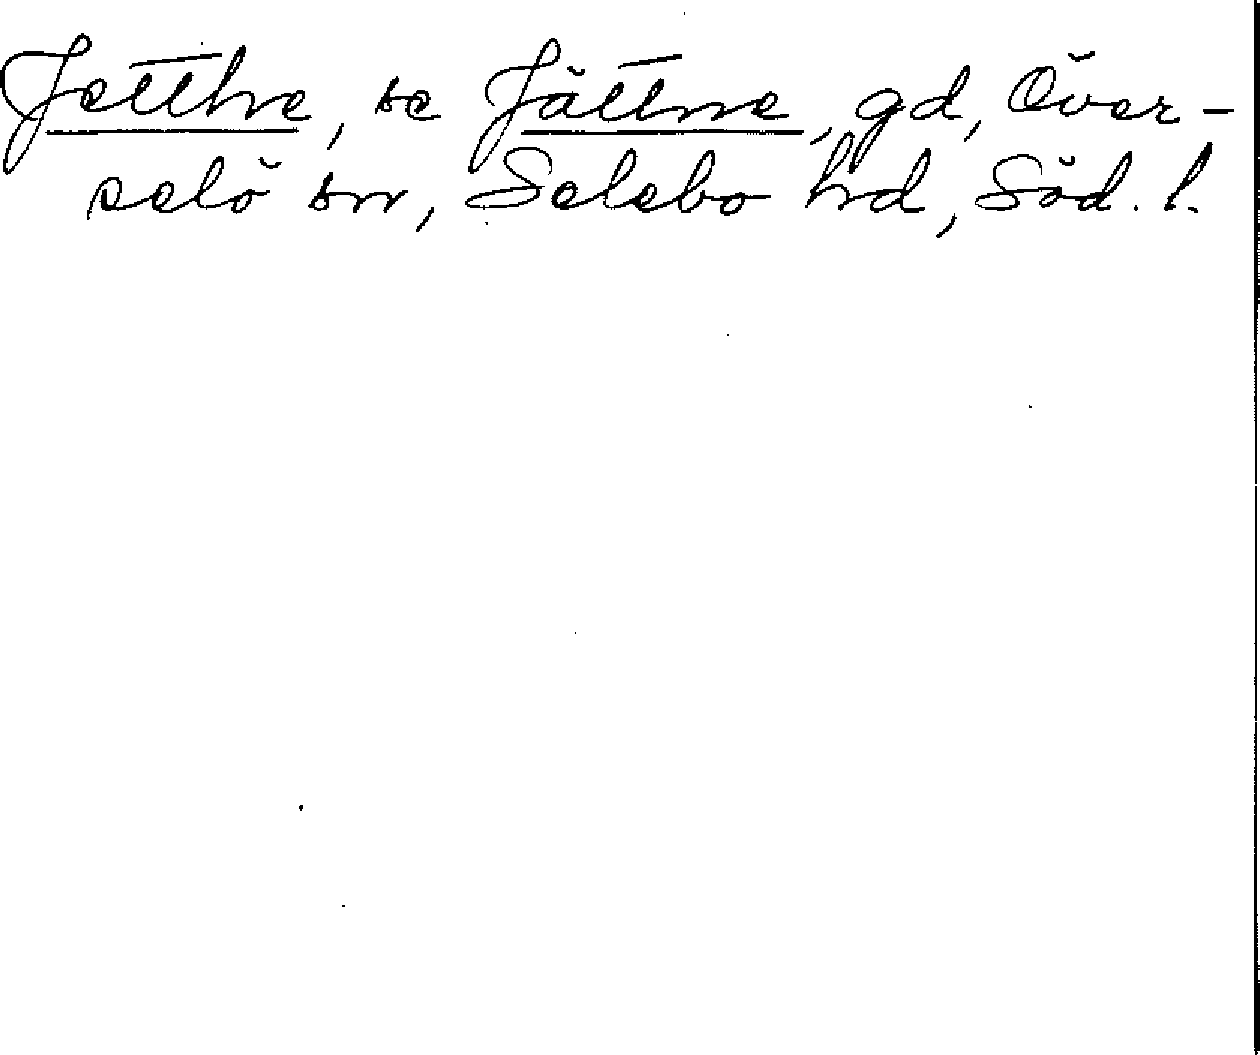 Jetthre, se Jättne, gd, Över-
selö sn, Selebo hd, Söd. l.